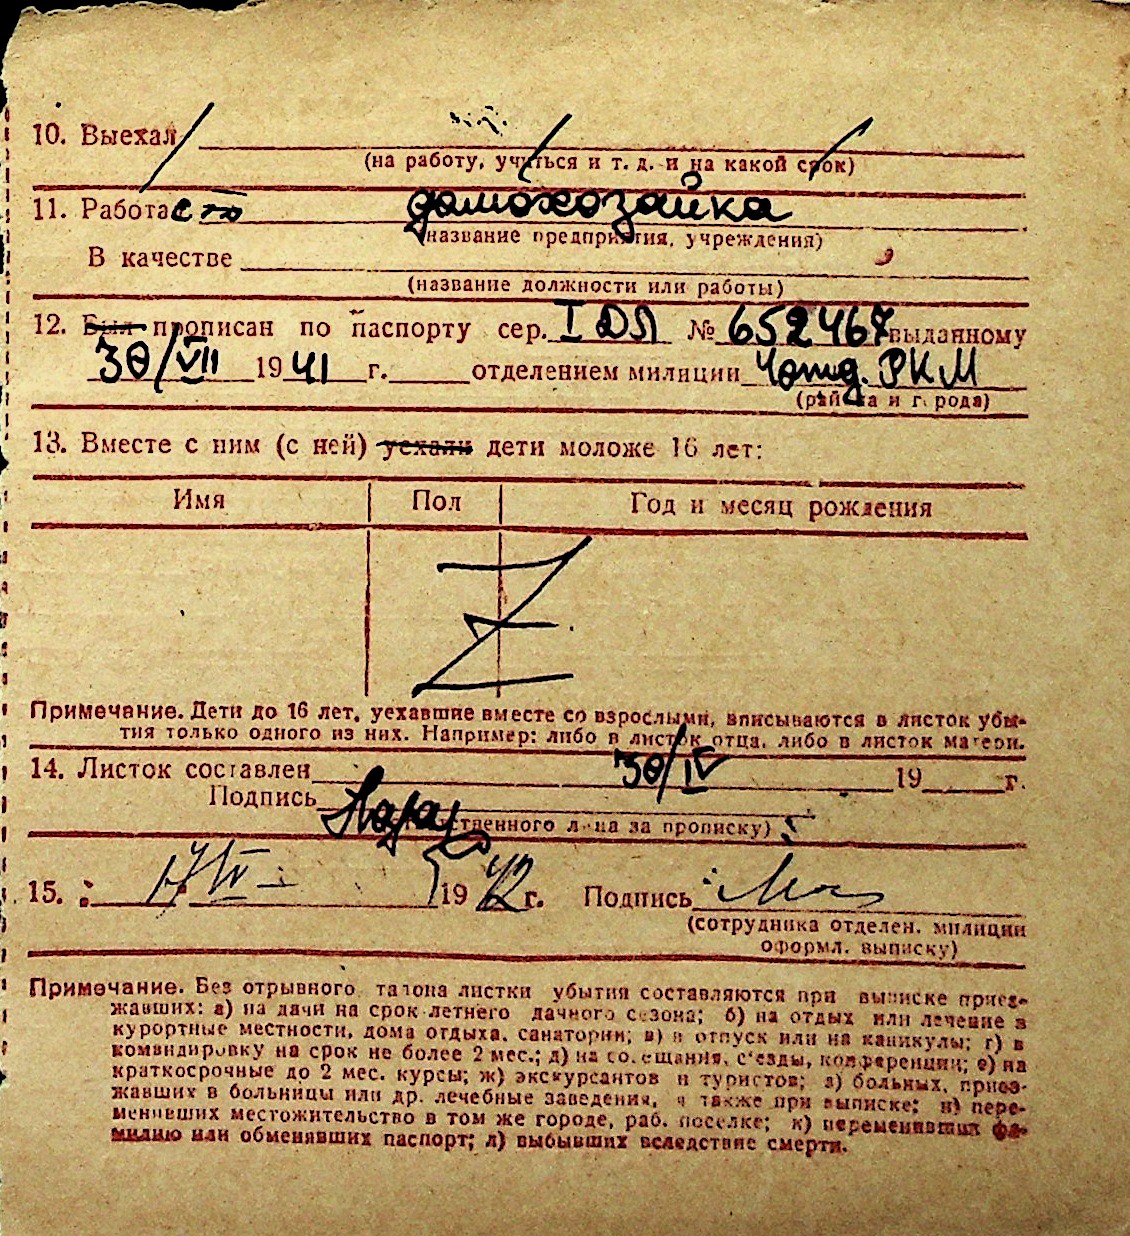 10. Выехал
(на работу, учиться и т. д. и на какой срок)
11. Работает домохозайка
(название предприятия, учреждения)
В качестве
(название должности или работы)
12. Был прописан по паспорту сер. I ДЛ № 652467 выданному
30/VII 1941 г. отделением милиции 4 отд. РКМ
(района и города)
13. Вместе с ним (с ней) уехали дети моложе 16 лет:
Имя Пол Год и месяц рождения
Z
Примечание. Дети до 16 лет, уехавшие вместе со взрослыми, вписываются в листок убы-
тия только одного из них. Например: либо в листок отца, либо в листок матери.
14. Листок составлен 30/IV 19 г.
Подпись
ственного лица за прописку)
15. 17/IV 1942 г. Подпись
(сотрудника отделен. милиции
оформл. выписку)
Примечание. Без отрывного талона листки убытия составляются при выписке приез-
жавших: а) на дачи на срок летнего дачного сезона; б) на отдых или лечение в
курортные местности, дома отдыха, санатории; в) в отпуск или на каникулы; г) в
командировку на срок не более 2 мес.; д) на совещания, съезды, конференции; е) на
краткосрочные до 2 мес. курсы; ж) экскурсантов и туристов; з) больных, приез-
жавших в больницы или др. лечебные заведения, а также при выписке; и) пере-
менивших местожительство в том же городе, раб. поселке; к) переменивших фа-
милию или обменявших паспорт; л) выбывших вследствие смерти.